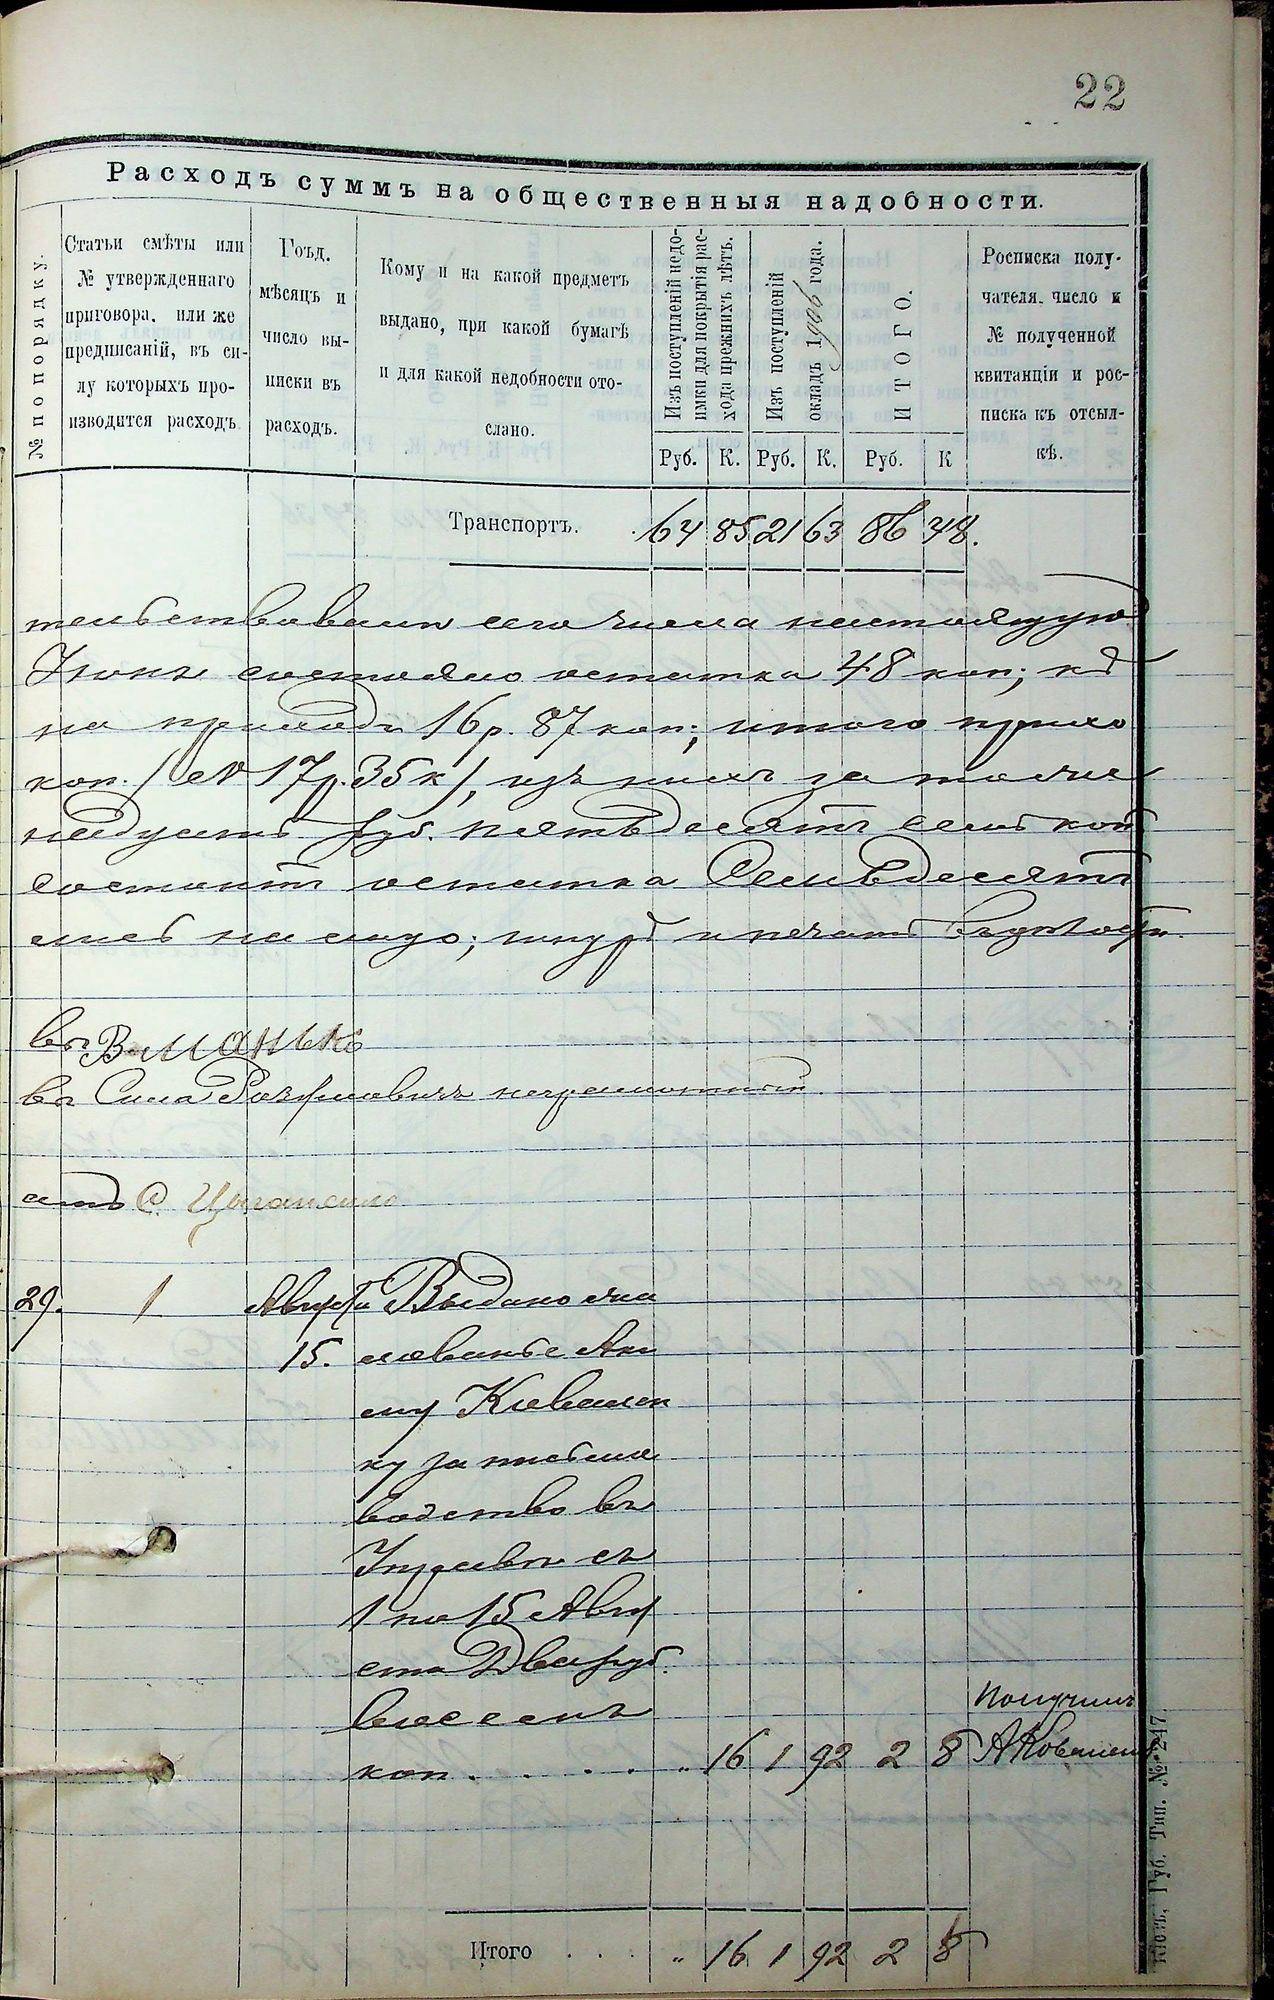 22
Расходъ суммъ на общественныя надобности.
№ по порядку.
Статьи смѣты или
№ утвержденнаго
приговора, или же
предписаній, въ си-
лу которыхъ про-
изводится расходъ.
Гоъд.
мѣсяцъ и
число вы-
писки въ
расходъ.
Кому и на какой предметъ
выдано, при какой бумагѣ
и для какой недобности ото-
слано.
Изъ поступленій недо-
имки для покрытія рас-
хода прежнихъ лѣтъ.
Изъ поступленій
окладъ 1906 года.
ИТОГО.
Росписка полу-
чателя. число и
№ полученной
квитанціи и рос-
писка къ отсыл-
кѣ.
Руб. К. Руб. К. Руб. К
Транспортъ. 64 85 21 63 86 48.
сего числа настоящую
состояло остатка 48 коп; къ
на приходъ 16 р. 87 коп; итого прихо
коп. (17 р. 35 к), изъ нихъ за тоже
руб. пятьдесятъ семь коп
состоитъ остатка Семьдесятъ
лись на лицо; шнуръ и печать
въ В. Манько
въ Сила неграмотный.
С. Цыганенко
29. 1 Августа Выдано жа
15. лованье Аки
му Коваленк
ку за письмо
водство въ
съ
1 по 15 Авгу
ста Два руб.
восемь
коп. . . . . „ 16 1 92 2 8
Получилъ
А Коваленко
Итого . . . . „ 16 1 92 2 8
Кіевъ, Губ. Тип. № 247.